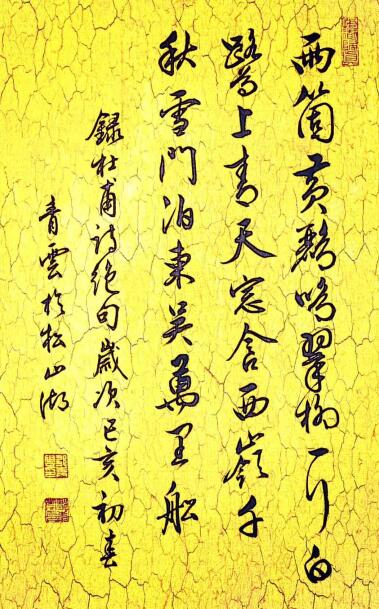 兩箇黃鸝鳴翠柳一行白
鷺上青天窓含西嶺千
秋雪門泊東吳萬里船
錄杜甫詩絕句歲次己亥初春
青雲於松山湖